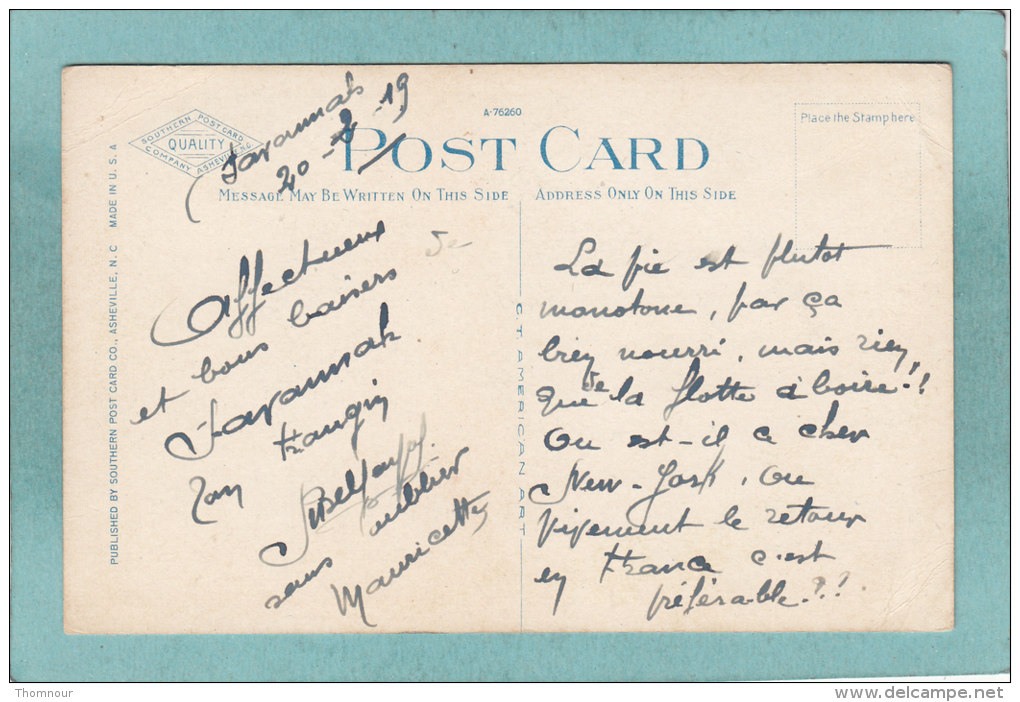 SOUTHERN POST CARD
QUALITY
COMPANY ASHEVILLE, N.C.
A-76260
POST CARD
MESSAGE MAY BE WRITTEN ON THIS SIDE
ADDRESS ONLY ON THIS SIDE
Place the Stamp here
PUBLISHED BY SOUTHERN POST CARD CO., ASHEVILLE, N. C. MADE IN U. S. A
C. T. AMERICAN ART
Savannah
20-2-19
Affectueux
et bons baisers de
Savannah.
Ton frangin
sans oublier
Mauricette
La vie est plutot
monotone, par ça
bien nourri, mais rien
que de la flotte à boire!!
Ou est-il ce cher
New-York, ou
vivement le retour
en France c'est
préférable.?!
Thomnour
www.delcampe.net